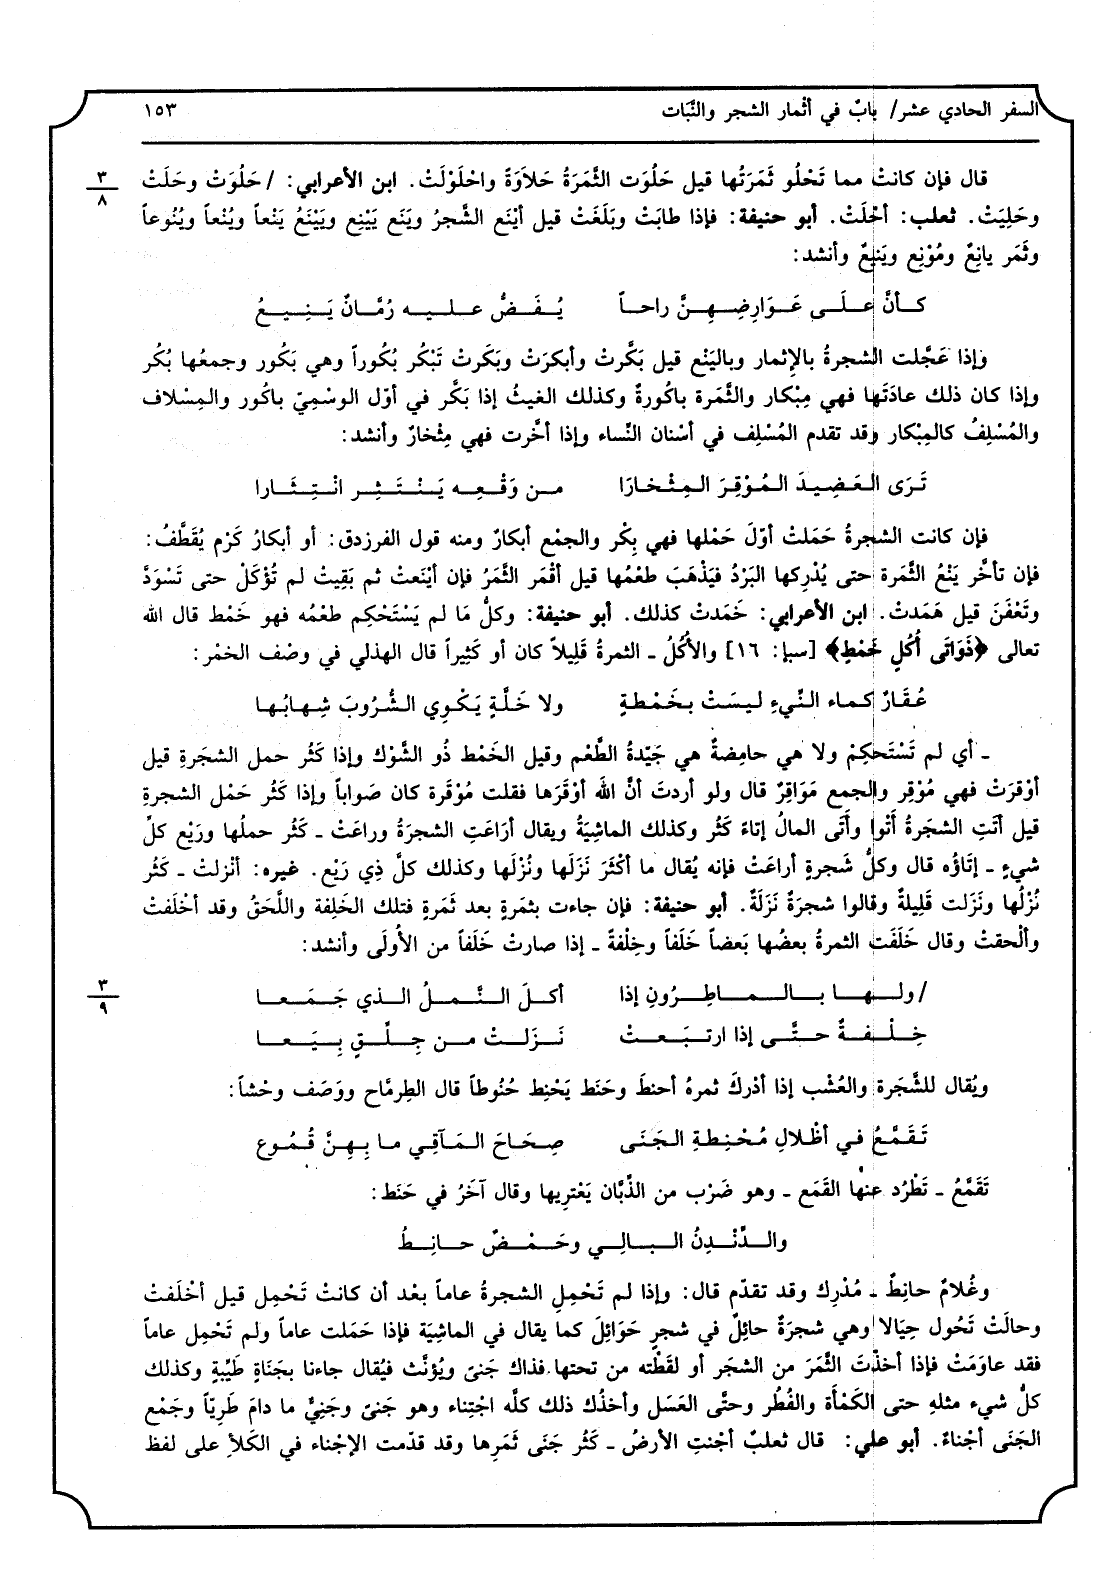 السفر الحادي عشر/ بابٌ في أثْمار الشجر والنَّبَات ١٥٣
قال فإن كانتْ مما تَحْلُو ثَمَرَتُها قيل حَلُوَت الثَّمَرَةُ حَلاوَةً واحْلَوْلَتْ. ابن الأعرابي: /حَلُوَتْ وحَلَتْ ٣/٨
وحَلِيَتْ. ثعلب: أحْلَتْ. أبو حنيفة: فإذا طابَتْ وبَلَغَتْ قيل أيْنَع الشَّجرُ ويَنَع يَيْنِع ويَيْنَعُ يَنْعاً ويُنْعاً ويُنُوعاً
وثَمَر يانِعٌ ومُوْنِع ويَنِيعٌ وأنشد:
كـأنَّ عـلَـى عَـوَارِضِـهِـنَّ راحـاً يُـفَـضُّ عـلـيـه رُمَّـانٌ يَـنِـيـعُ
وإذا عَجَّلت الشجرةُ بالإثمار وباليَنْع قيل بَكَّرتْ وأبكرَتْ وبَكَرتْ تَبْكُر بُكُوراً وهي بَكُور وجمعُها بُكُر
وإذا كان ذلك عادَتَها فهي مِبْكار والثَّمَرة باكُورةٌ وكذلك الغيثُ إذا بَكَّر في أوّل الوسْمِيّ باكُور والمِسْلاف
والمُسْلِفُ كالمِبْكار وقد تقدم المُسْلِف في أسْنان النَّساء وإذا أخَّرت فهي مِئْخارٌ وأنشد:
تَـرَى الـعَـضِـيـدَ الـمُـوْقِـرَ الـمِـئْـخـارَا مـن وَقْـعِـه يَـنْـتَـثِـر انْـتِـثَـارا
فإن كانت الشجرةُ حَمَلتْ أوّلَ حَمْلها فهي بِكْر والجمع أبكارٌ ومنه قول الفرزدق: أو أبكارُ كَرْم يُقَطَّفُ:
فإن تأخَّر يَنْعُ الثَّمَرة حتى يُدْرِكها البَرْدُ فيَذْهَبَ طعْمُها قيل أقْمَر الثَّمَرُ فإن أيْنَعتْ ثم بَقِيتْ لم تُؤْكَلْ حتى تَسْوَدَّ
وتَعْفَنَ قيل هَمَدتْ. ابن الأعرابي: خَمَدتْ كذلك. أبو حنيفة: وكلُّ مَا لم يَسْتَحْكِم طعْمُه فهو خَمْط قال الله
تعالى ﴿ذَوَاتَى أُكُلٍ خَمْطٍ﴾ [سبإ: ١٦] والأُكُلُ ـ الثمرةُ قَلِيلاً كان أو كَثِيراً قال الهذلي في وصْف الخمْر:
عُـقَـارٌ كـمـاء الـنِّـيءِ لـيـسَـتْ بـخَـمْـطـةٍ ولا خَـلَّـةٍ يَـكْـوِي الـشُّـرُوبَ شِـهـابُـهـا
ـ أي لم تَسْتَحكِمْ ولا هي حامِضةٌ هي جَيّدةُ الطَّعْم وقيل الخَمْط ذُو الشَّوْك وإذا كَثُر حمل الشجَرةِ قيل
أوْقَرَتْ فهي مُوْقِر والجمع مَوَاقِرٌ قال ولو أردتَ أنَّ الله أوْقَرَها فقلت مُوْقَرة كان صَواباً وإذا كَثُر حَمْل الشجرةِ
قيل أتَتِ الشجَرةُ أتْواً وأَتَى المالُ إتاءً كَثُر وكذلك الماشِيَةُ ويقال أرَاعَتِ الشجرَةُ وراعَتْ ـ كَثُر حملُها ورَيْع كلِّ
شيءٍ ـ إتَاؤُه قال وكلُّ شَجرةٍ أراعَتْ فإنه يُقال ما أكْثَرَ نَزَلَها ونُزْلَها وكذلك كلَّ ذِي رَيْع. غيره: أنْزلتْ ـ كَثُر
نُزْلُها ونَزَلت قَلِيلةً وقالوا شجرَةٌ نَزِلَةٌ. أبو حنيفة: فإن جاءت بثمرةٍ بعد ثَمَرةٍ فتلك الخَلِفة واللَّحَقُ وقد أخْلَفتْ
وألْحقتْ وقال خَلَفَت الثمرةُ بعضُها بَعضاً خَلْفاً وخِلْفةً ـ إذا صارتْ خَلَفاً من الأُولَى وأنشد:
/ولـهـا بـالـمـاطِـرُونِ إذا أكـلَ الـنَّـمـلُ الـذي جَـمَـعـا ٣/٩
خِـلْـفـةٌ حـتَّـى إذا ارتـبَـعـتْ نَـزَلـتْ مـن جِـلِّـقٍ بِـيَـعـا
ويُقال للشَّجَرة والعُشْب إذا أدْركَ ثمرهُ أحنطَ وحَنَط يَحْنِط حُنُوطاً قال الطِرمَّاح ووَصَف وحْشاً:
تَـقَـمَّـعُ في أظْـلالِ مُـحْـنِـطـةِ الـجَـنَـى صِـحَـاحَ الـمَـآقِـي مـا بِـهِـنَّ قُـمُـوع
تَقَمَّعُ ـ تَطْرُد عنها القَمَع ـ وهو ضَرْب من الذِّبَّان يَعْتَرِيها وقال آخَرُ في حَنَط:
والـدِّنْـدِنُ الـبـالِـي وحَـمْـضٌ حـانِـطُ
وغُلامٌ حانِطٌ ـ مُدْرِك وقد تقدّم قال: وإذا لم تَحْمِل الشجرةُ عاماً بعْد أن كانتْ تَحْمِل قيل أخْلَفتْ
وحالَتْ تَحُول حِيَالا وهي شجرَةٌ حائِلٌ في شجرٍ حَوَائِلَ كما يقال في الماشِيَة فإذا حَمَلت عاماً ولم تَحْمِل عاماً
فقد عاوَمَتْ فإذا أخذْتَ الثَّمَرَ من الشجَر أو لقَطْته من تحتها فذاك جَنىً ويُؤنَّث فيُقال جاءنا بجَنَاةٍ طَيّبةٍ وكذلك
كلُّ شيء مثلهِ حتى الكَمْأة والفُطُر وحتَّى العَسَل وأخذُك ذلك كلَّه اجْتِناء وهو جَنىً وجَنِيٌّ ما دامَ طَرِيّاً وجَمْع
الجَنَى أجْناءٌ. أبو علي: قال ثعلبٌ أجْنتِ الأرضُ ـ كَثُر جَنَى ثَمَرِها وقد قدّمت الإجْناء في الكَلأ على لفظ